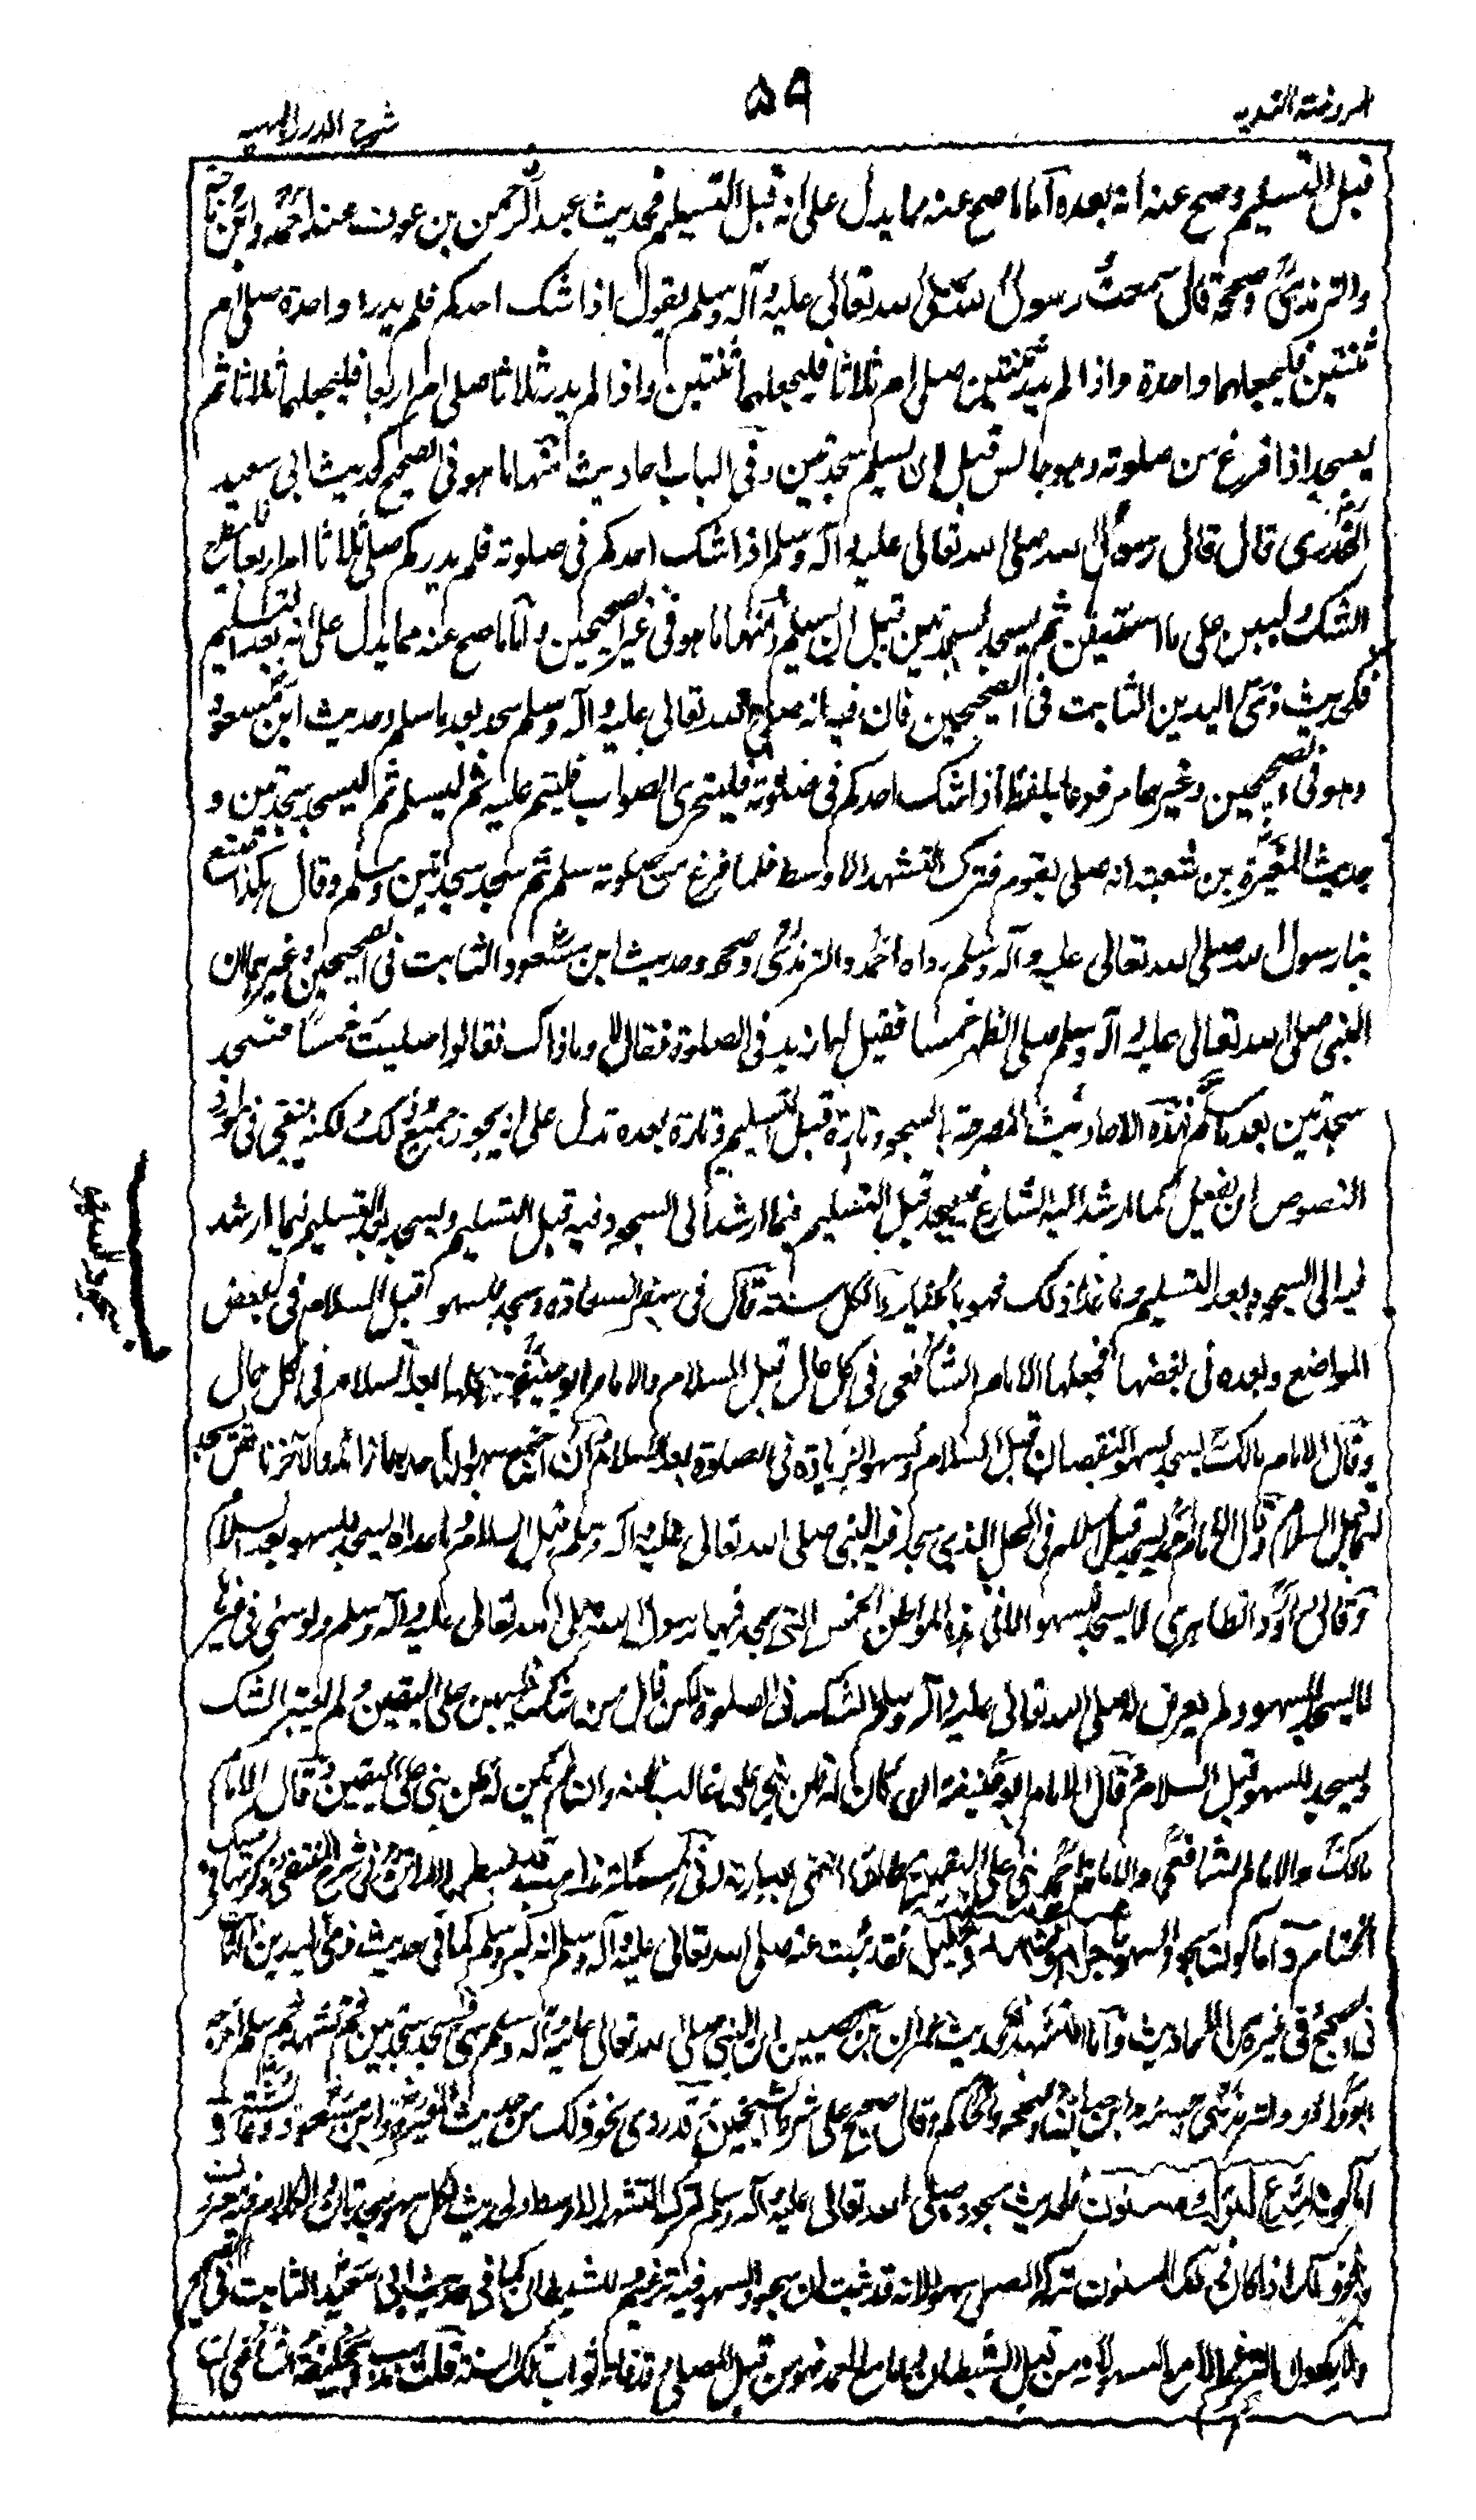 الروضة الندية
٥٩
شرح الدرر البهية
قبل التسليم وصح عنه انه بعده اما ما صح عنه مما يدل على انه قبل التسليم فحديث عبد الرحمن بن عوف عند احمد وابن ماجة
والترمذي وصححه قال سمعت رسول الله صلى الله تعالى عليه وآله وسلم يقول اذا شك احدكم فلم يدر واحدة صلى ام
ثنتين فليجعلها واحدة واذا لم يدر ثنتين صلى ام ثلاثا فليجعلها ثنتين واذا لم يدر ثلاثا صلى ام اربعا فليجعلها ثلاثا ثم
يسجد اذا فرغ من صلوته وهو جالس قبل ان يسلم سجدتين وفي الباب احاديث منها ما هو في الصحيح كحديث ابي سعيد
الخدري قال قال رسول الله صلى الله تعالى عليه وآله وسلم اذا شك احدكم في صلوته فلم يدر كم صلى ثلاثا ام اربعا فليطرح
الشك وليبن على ما استيقن ثم يسجد سجدتين قبل ان يسلم ومنها ما هو في غير الصحيحين واما ما صح عنه مما يدل على انه بعد التسليم
فكحديث ذي اليدين الثابت في الصحيحين فان فيه انه صلى الله تعالى عليه وآله وسلم سجد بعد ما سلم وحديث ابن مسعود
وهو في الصحيحين وغيرهما مرفوعا بلفظ اذا شك احدكم في صلوته فليتحرى الصواب فليتم عليه ثم ليسلم ثم ليسجد سجدتين و
حديث المغيرة بن شعبة انه صلى بقوم فترك التشهد الاوسط فلما فرغ من صلوته سلم ثم سجد سجدتين وسلم وقال هكذا صنع
بنا رسول الله صلى الله تعالى عليه وآله وسلم رواه احمد والترمذي وصححه وحديث ابن مسعود الثابت في الصحيحين وغيرهما ان
النبي صلى الله تعالى عليه وآله وسلم صلى الظهر خمسا فقيل له ازيد في الصلوة فقال لا وما ذاك فقالوا صليت خمسا فسجد
سجدتين بعد ما سلم فهذه الاحاديث المصرحة بالسجود تارة قبل التسليم وتارة بعده تدل على انه يجوز جميع ذلك لكنه ينبغي في موارد
النصوص ان يفعل كما ارشد اليه الشارع فيسجد قبل التسليم فيما ارشد الى السجود فيه قبل التسليم ويسجد بعد التسليم فيما ارشد
فيه الى السجود بعد التسليم وما عدا ذلك فهو بالخيار والكل سنة قال في سفر السعادة وسجد للسهو قبل السلام في بعض
المواضع وبعده في بعضها فجعلها الامام الشافعي في كل حال قبل السلام والامام ابو حنيفة جعلها بعد السلام في كل حال
وقال الامام مالك يسجد لسهو النقصان قبل السلام ولسهو الزيادة في الصلوة بعد السلام وان اجتمع سهوان احدهما زائد والآخر ناقص سجد
لهما قبل السلام وقال الامام احمد يسجد قبل السلام في المحل الذي سجد فيه النبي صلى الله تعالى عليه وآله وسلم قبل السلام وما عداه يسجد للسهو بعد السلام
وقال داود الظاهري لا يسجد للسهو الا في هذه المواطن الخمس التي سجد فيها رسول الله صلى الله تعالى عليه وآله وسلم ولو سهى في غيرها
لا يسجد للسهو ولم يعرض له صلى الله تعالى عليه وآله وسلم الشك في الصلوة لكن قال من شك فليبن على اليقين ولم يعتبر الشك
ويسجد للسهو قبل السلام وقال الامام ابو حنيفة ان كان له ظن بنى على غالب ظنه وان لم يكن له ظن بنى على اليقين وقال الامام
مالك والامام الشافعي والامام احمد بنى على اليقين مطلقا انتهى بعبارته وفي المسئلة مذاهب قد بسطها في شرح المنتقى
واما كون سجود السهو فقد ثبت عنه صلى الله تعالى عليه وآله وسلم انه كبر وسلم كما في حديث ذي اليدين الثابت
في الصحيح وفي غيره من الاحاديث واما التشهد فلحديث عمران بن حصين ان النبي صلى الله تعالى عليه وآله وسلم سجد سجدتين ثم تشهد ثم سلم اخرجه
ابو داود والترمذي وحسنه وابن حبان وصححه والحاكم وقال صحيح على شرط الشيخين وقد روى نحو ذلك من حديث المغيرة وابن مسعود وعائشة و
اما كونه يشرع لترك مسنون فلحديث سجوده صلى الله تعالى عليه وآله وسلم لترك التشهد الاوسط ولحديث لكل سهو سجدتان والكلام فيه معروف
ذلك اذا كان ذلك المسنون تركه المصلي سهوا لانه قد ثبت ان سجود السهو فيه ترغيم للشيطان كما في حديث ابي سعيد الثابت في الصحيح
ولا يكون الترغيم الا مع السهو لانه من قبل الشيطان واما مع العمد فهو من قبل المصلي وقد فاته ثواب تلك السنة قلت
سجود السهو